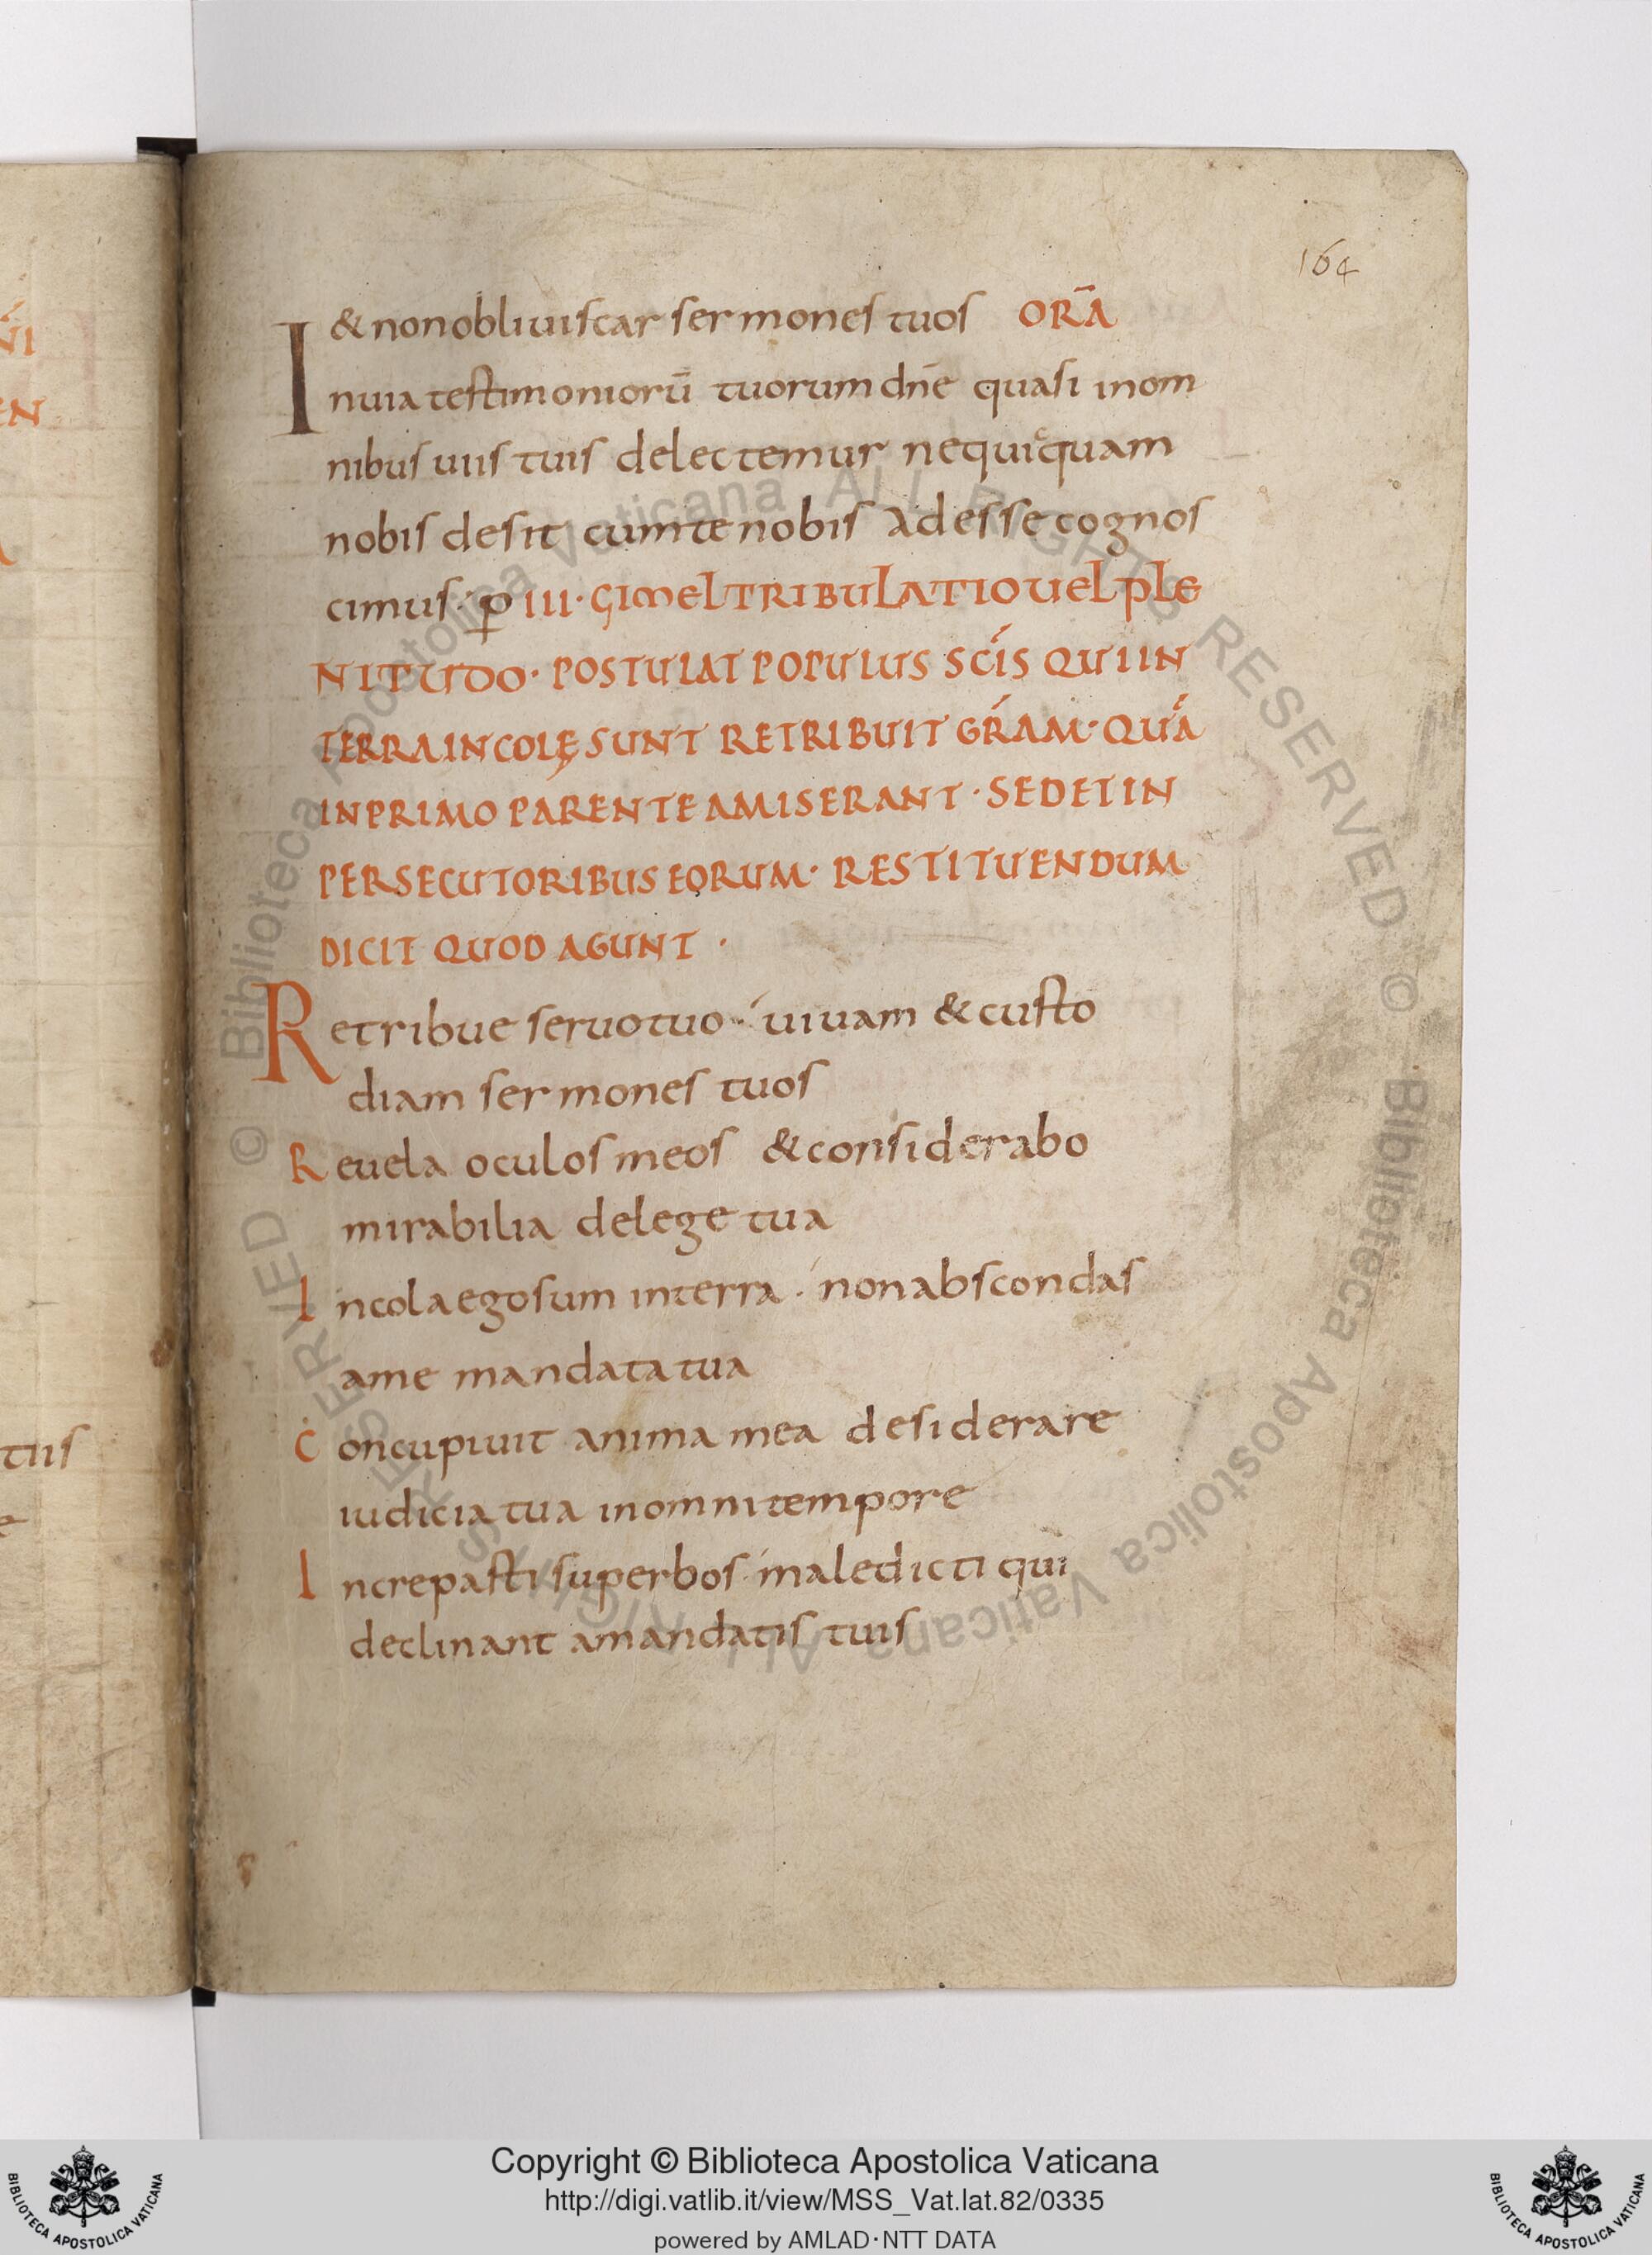 164
& non obliuiscar sermones tuos ORĀ
In uia testimoniorū tuorum dn̄e quasi in om
nibus uiis tuis delectemur nequicquam
nobis desit cum te nobis adesse cognos
cimus· p III· GIMEL TRIBULATIO VEL PLE
NITUDO· POSTULAT POPULUS SCĪS QUI IN
TERRA INCOLĘ SUNT RETRIBUIT GRĀM· QUĀ
IN PRIMO PARENTE AMISERANT· SED ET IN
PERSECUTORIBUS EORUM· RESTITUENDUM
DICIT QUOD AGUNT·
Retribue seruo tuo· uiuam & custo
diam sermones tuos
Reuela oculos meos & considerabo
mirabilia de lege tua
Incola ego sum in terra· non abscondas
a me mandata tua
Concupiuit anima mea desiderare
iudicia tua in omni tempore
Increpasti superbos· maledicti qui
declinant a mandatis tuis
NI
EN
tuis
© Biblioteca Apostolica Vaticana ALL RIGHTS RESERVED © Biblioteca Apostolica Vaticana ALL RIGHTS RESERVED
Copyright © Biblioteca Apostolica Vaticana
http://digi.vatlib.it/view/MSS_Vat.lat.82/0335
powered by AMLAD·NTT DATA
BIBLIOTECA APOSTOLICA VATICANA
BIBLIOTECA APOSTOLICA VATICANA